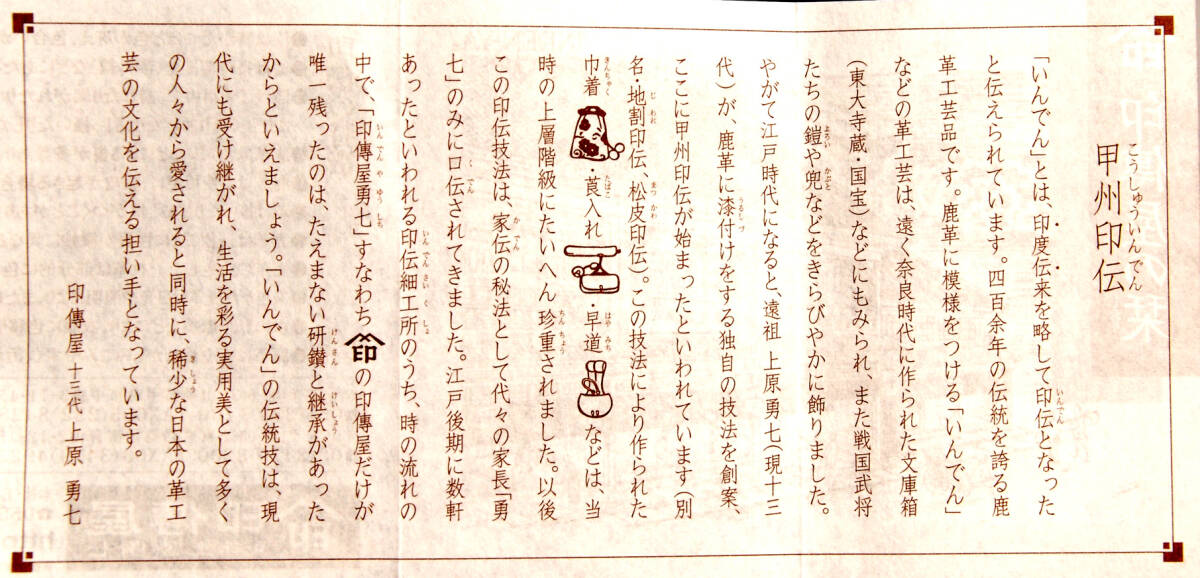 甲州印伝
「いんでん」とは、印度伝来を略して印伝となった
と伝えられています。四百余年の伝統を誇る鹿
革工芸品です。鹿革に模様をつける「いんでん」
などの革工芸は、遠く奈良時代に作られた文庫箱
(東大寺蔵・国宝)などにもみられ、また戦国武将
たちの鎧や兜などをきらびやかに飾りました。
やがて江戸時代になると、遠祖 上原勇七(現十三
代)が、鹿革に漆付けをする独自の技法を創案、
ここに甲州印伝が始まったといわれています(別
名・地割印伝、松皮印伝)。この技法により作られた
巾着・莨入れ・早道などは、当
時の上層階級にたいへん珍重されました。以後
この印伝技法は、家伝の秘法として代々の家長「勇
七」のみに口伝されてきました。江戸後期に数軒
あったといわれる印伝細工所のうち、時の流れの
中で、「印傳屋勇七」すなわち印の印傳屋だけが
唯一残ったのは、たえまない研鑚と継承があった
からといえましょう。「いんでん」の伝統技は、現
代にも受け継がれ、生活を彩る実用美として多く
の人々から愛されると同時に、稀少な日本の革工
芸の文化を伝える担い手となっています。
印傳屋 十三代 上原 勇七